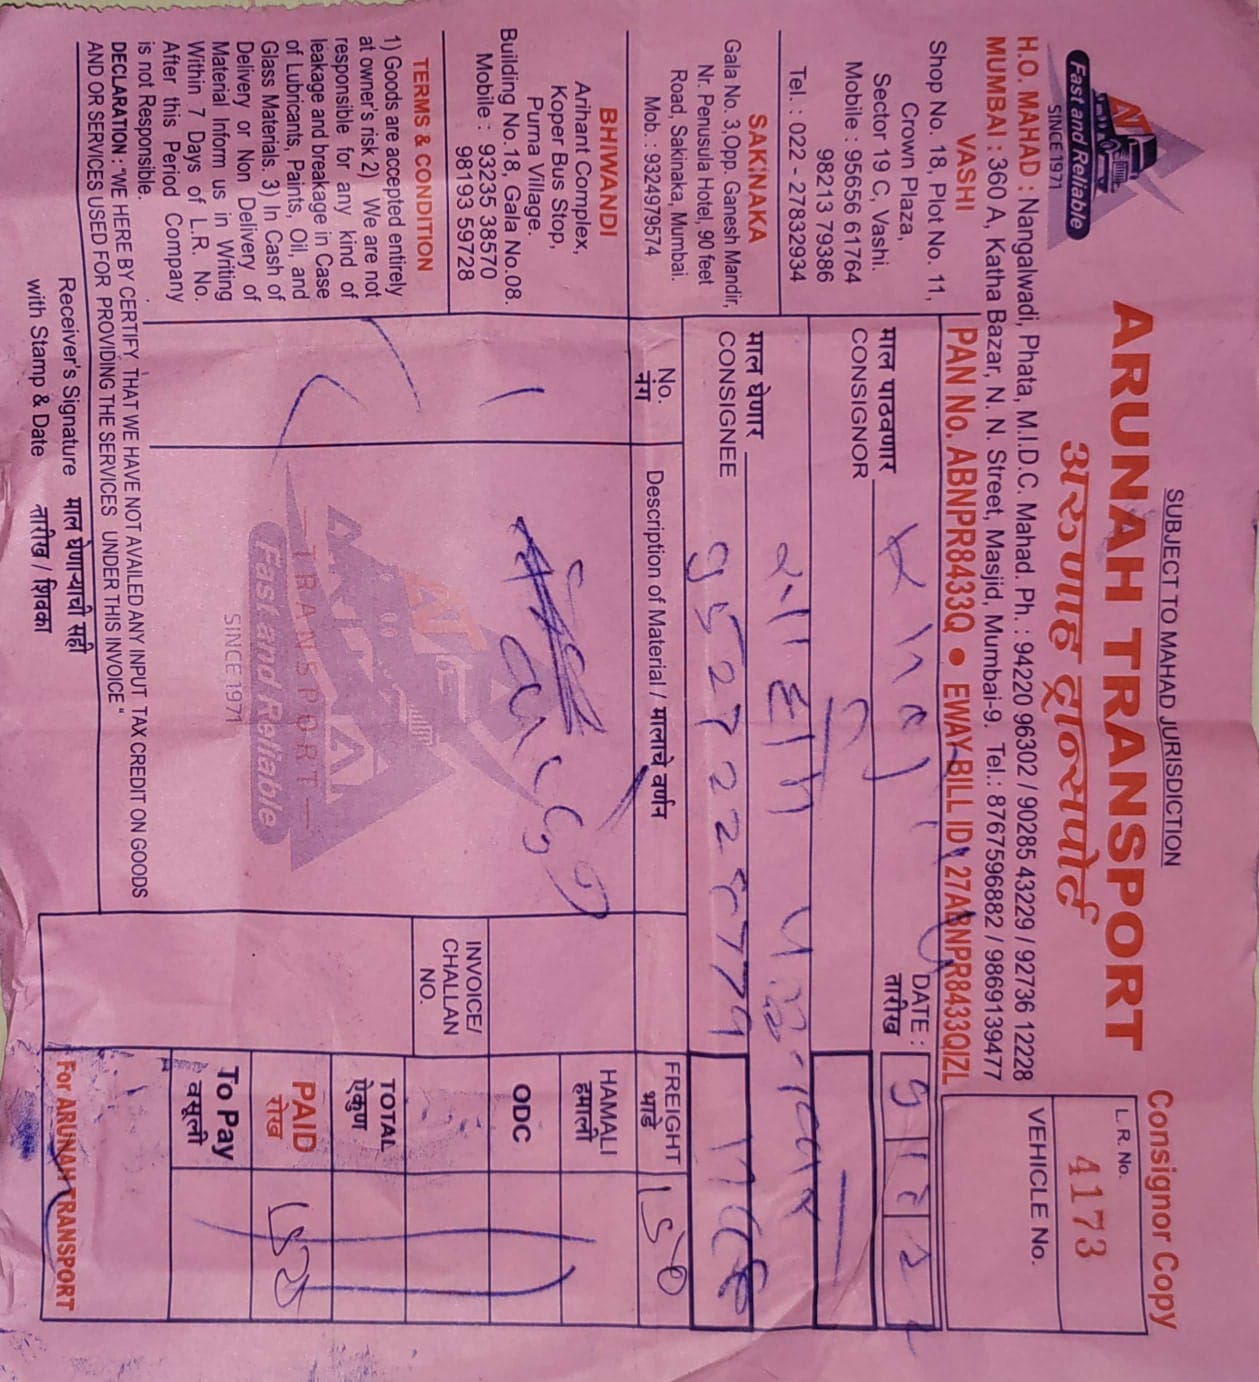 SUBJECT TO MAHAD JURISDICTION
Consignor Copy
ARUNAH TRANSPORT
अरुणाह ट्रान्सपोर्ट
AT
Fast and Reliable
SINCE 1971
L. R. No.
4173
VEHICLE No.
H.O. MAHAD : Nangalwadi, Phata, M.I.D.C. Mahad. Ph. : 94220 96302 / 90285 43229 / 92736 12228
MUMBAI : 360 A, Katha Bazar, N. N. Street, Masjid, Mumbai-9. Tel.: 8767596882 / 9869139477
PAN No. ABNPR8433Q • EWAY-BILL ID 27ABNPR8433QIZL
VASHI
Shop No. 18, Plot No. 11,
Crown Plaza,
Sector 19 C, Vashi.
Mobile : 95656 61764
98213 79386
Tel. : 022 - 27832934
SAKINAKA
Gala No. 3,Opp. Ganesh Mandir,
Nr. Penusula Hotel, 90 feet
Road, Sakinaka, Mumbai.
Mob. : 9324979574
BHIWANDI
Arihant Complex,
Koper Bus Stop,
Purna Village.
Building No.18, Gala No.08.
Mobile : 93235 38570
98193 59728
TERMS & CONDITION
1) Goods are accepted entirely
at owner's risk 2) We are not
responsible for any kind of
leakage and breakage in Case
of Lubricants, Paints, Oil, and
Glass Materials. 3) In Cash of
Delivery or Non Delivery of
Material Inform us in Writing
Within 7 Days of L.R. No.
After this Period Company
is not Responsible.
माल पाठवणार
CONSIGNOR
DATE :
तारीख
माल घेणार
CONSIGNEE
No.
नंग
Description of Material / मालाचे वर्णन
FREIGHT
भाडे
150
HAMALI
हमाली
ODC
INVOICE/
CHALLAN
NO.
TOTAL
ऐकुण
PAID
रोख
150
To Pay
वसूली
AT
TRANSPORT
Fast and Reliable
SINCE 1971
DECLARATION : "WE HERE BY CERTIFY THAT WE HAVE NOT AVAILED ANY INPUT TAX CREDIT ON GOODS
AND OR SERVICES USED FOR PROVIDING THE SERVICES UNDER THIS INVOICE"
Receiver's Signature माल घेणाऱ्याची सही
with Stamp & Date तारीख / शिक्का
For ARUNAH TRANSPORT